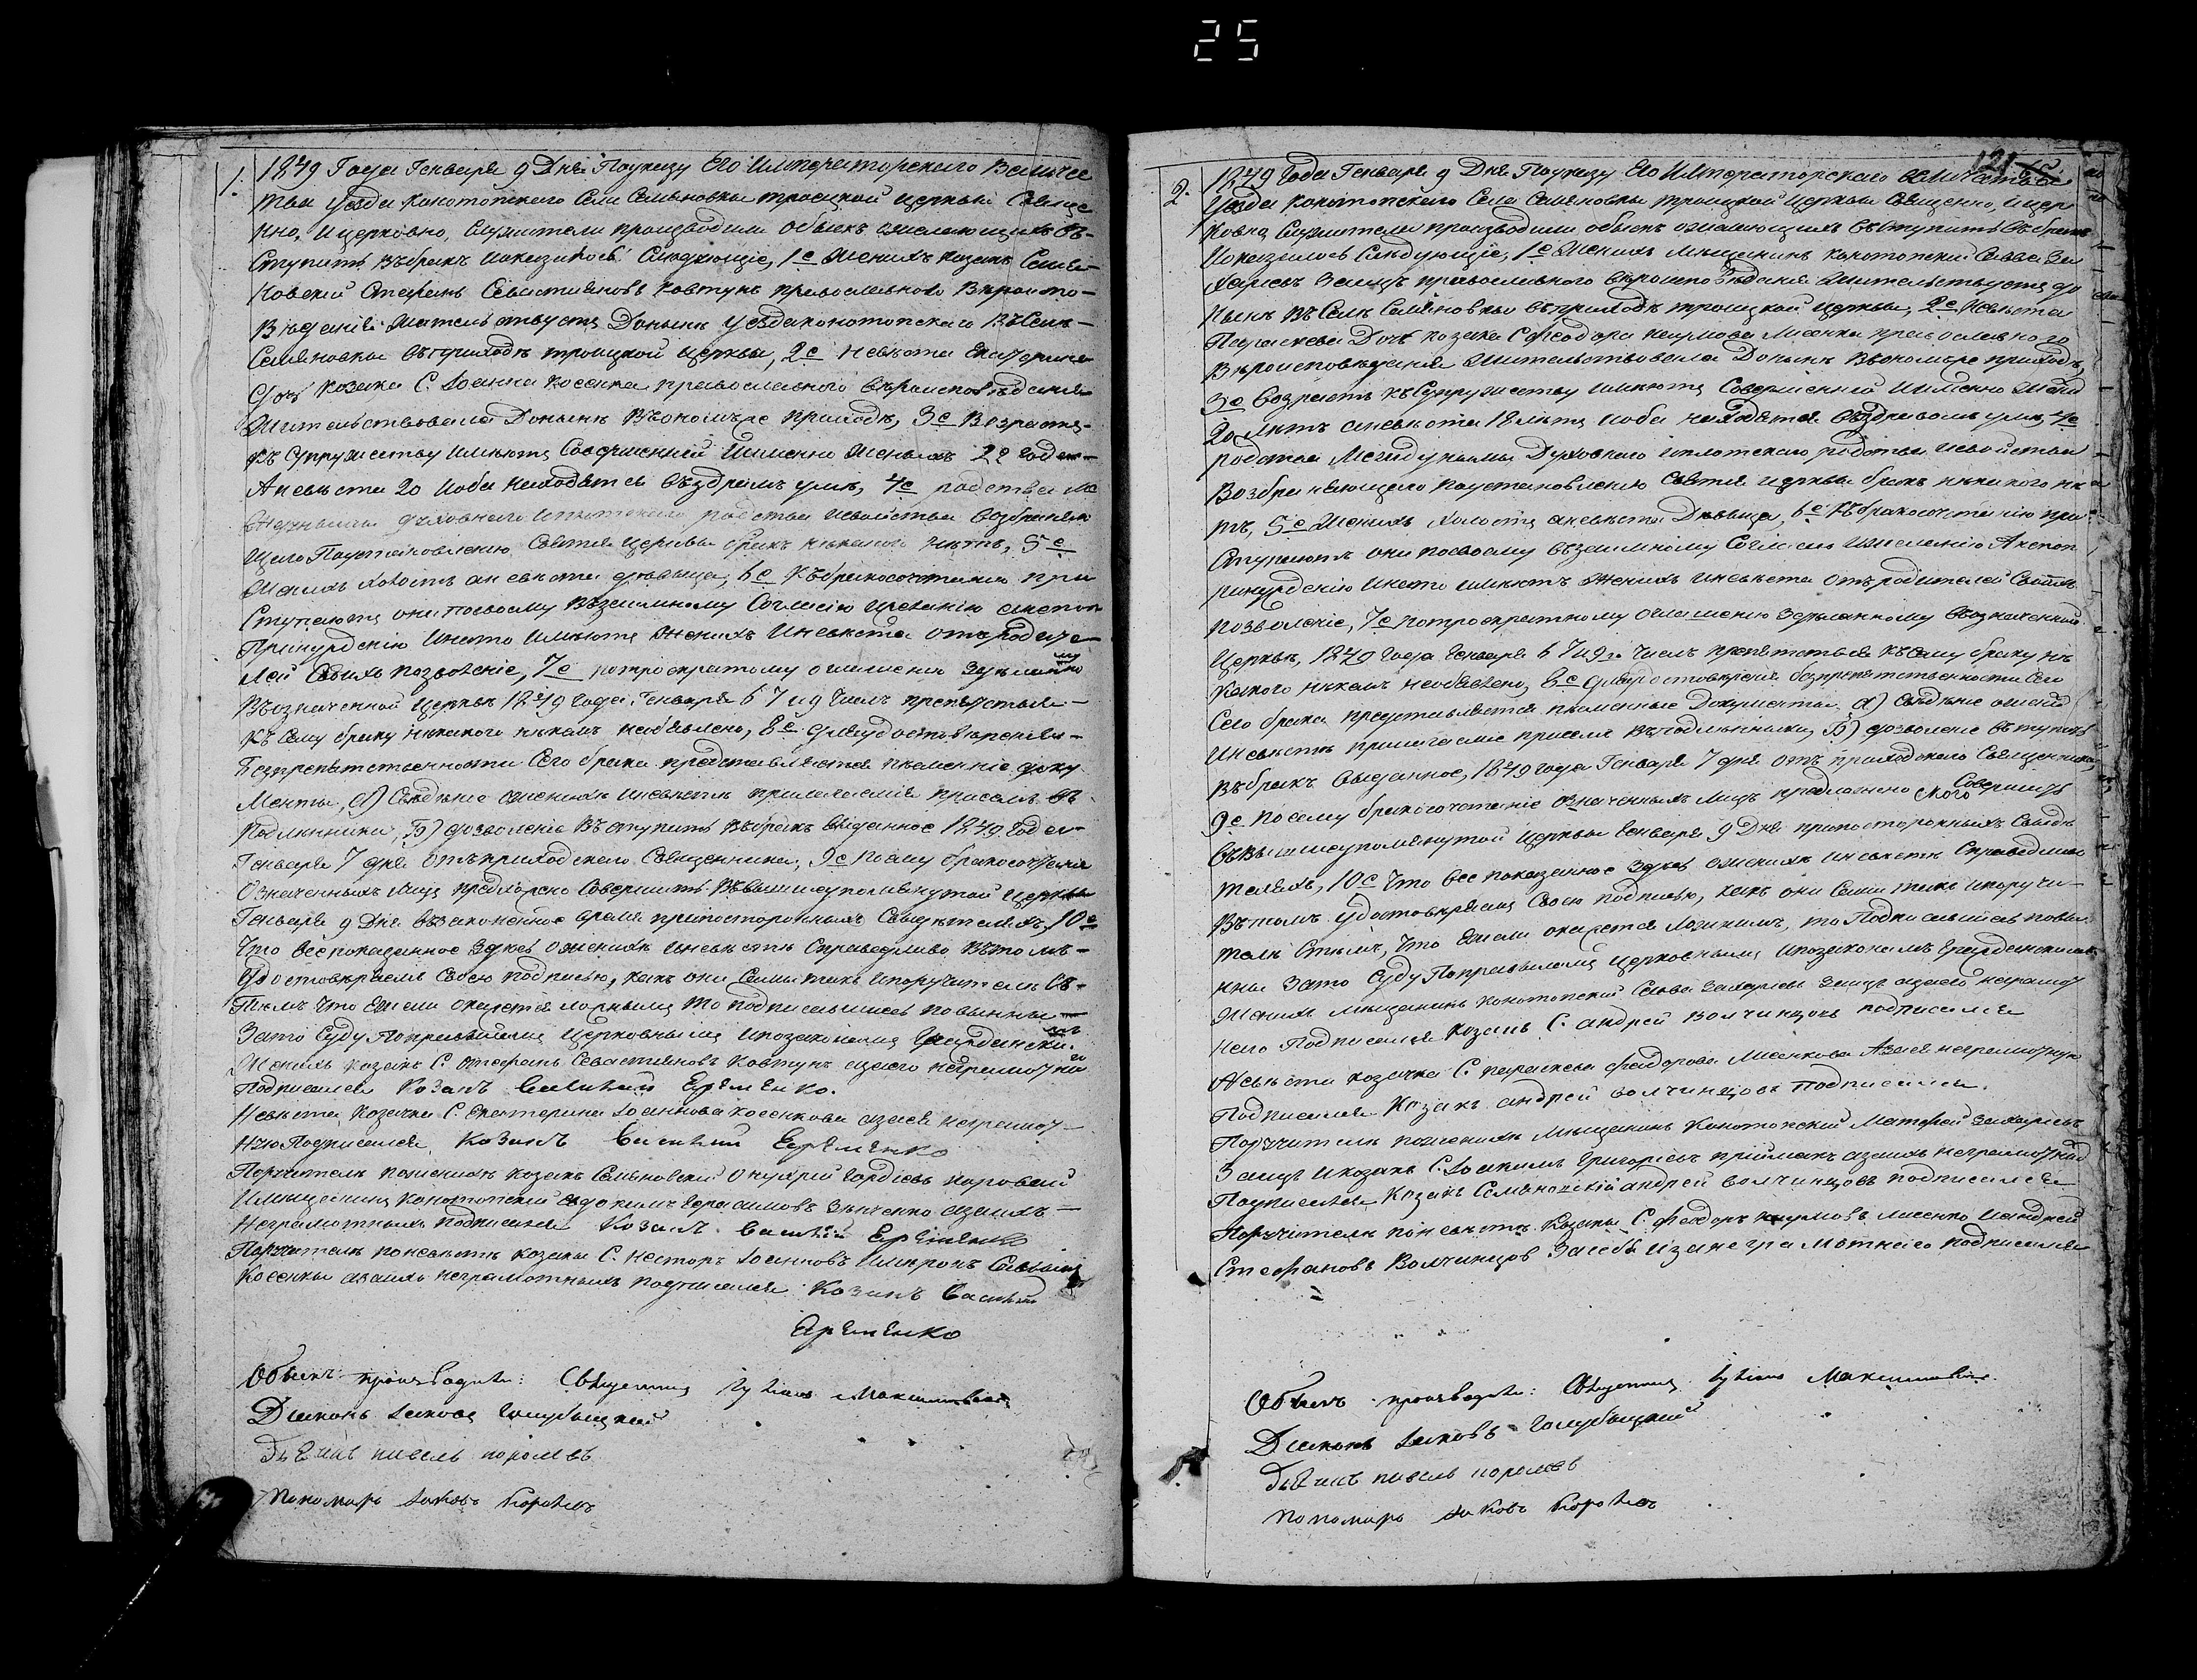 25
1. 1849 Года Генваря 9 Дня По указу Его Императорского Величес
тва уезда Конотопского Села Семяновки троицкой церкви Свяще
нно, и церковно, служители производили обыск о желающих в-
ступить в брак и оказалось следующие, 1е Жених козак Семя-
новский Стефан Севастиянов Ковтун православного вероиспо-
ведания жительствует Доныне уезда конотопского в Селе-
Семяновки в приходе троицкой церкви, 2е невеста Екатерина
дочь козака С. Иоанна косенка православного вероисповедания
жительствовала Доныне в оном же приходе, 3е Возраст-
к супружеству имеют Совершенный именно жених 22 года-
А невеста 20 и оба находятся в здравом уме, 4е родства ме
жду ними духовного и плотского родства и свойства возбраняю
щего По установлению Святыя церкви брак никакого нет, 5е
Жених холост а невеста девица, 6е К бракосочетанию при
ступают они по своему взаимному Согласию и желанию а не по
принуждению и на то имеют жених и невеста от родите-
лей своих позволение, 7е по троекратному оглашению зделанно му
в означенной церкве 1849 года Генваря 6 7 и 9 числ препятствия-
к сему браку никакого никем не объявлено, 8е для удостоверения-
безпрепятственности Сего брака представляются письменные доку
менты, а) Сведение о женихе и невесте прилагаемые при сем в
подлиннике, б) дозволение вступить в брак выданное 1849 года-
Генваря 7 дня от приходского Священника, 9е По сему бракосочетание
означенных лиц предложено Совершить в вышеупомянутой церкви
Генваря 9 Дня в законное время при посторонных Свидетелях, 10е
Что все показанное здесь о женихе и невесте Справедливо в том-
удостоверяем своею подписью, как они Сами так и поручители с-
тем что Ежели окажется ложным то подписавшиеся повинны-
за то Суду По правилам церковным и по законам Гражданским
Жених козак С. Стефан Севастиянов Ковтун а за его неграмотного
подписался Козак Василий Еременко.
Невеста козачка С. Екатерина Иоаннова косенкова а за ея неграмот-
ную Подписался Козак Василий Еременко
Поручители по жениху козак Семяновский Онуфрий Гордиев коровай
и мещанин Конотопский Евдоким Герасимов а за их-
неграмотных подписался Козак Василий Еременко
Поручители по невесте козаки С. Нестор Иоаннов и мирон
косенки а за их неграмотных подписался Козак Василий
Еременко
Обыск производили: Священник Максимович
Диакон Иаков Голубицкий
Дьячик Павел королев
Пономарь Иаков Королев
121
2. 1849 года Генваря 9 Дня По указу Его Императорского величества
уезда конотопского Села Семяновки троицкой церкви Священно, и цер
ковно служители производили обыск о желающих вступить в брак
и оказалось Следующие, 1е Жених мещанин конотопский Савва За
харьев Заиц православного вероисповедания жительствует до
ныне в Селе Семяновки в приходе троицкой церкви, 2е Невеста
Параскева Дочь козака С Феодора наумова Лисенка православного
вероисповедания жительствовала Доныне в оном же приходе,
3е Возраст к Супружеству имеют Совершенный именно жених
20 лет а невеста 18 лет и оба находятся в здравом уме, 4е
родства Между ними Духовного и плотского родства и свойства
возбраняющего по установлению Святыя церкви брак никакого не
т, 5е Жених холост а невеста Девица, 6е К бракосочетанию при
ступают они по своему взаимному Согласию и желанию А не по
принуждению и на то имеют жених и невеста от родителей Своих
позволение, 7е по троекратному оглашению зделанному в означенной
церкве, 1849 года Генваря 6 7 и 9го числ препятствия к сему браку ни
какого никем необявлено, 8е для удостоверения безпрепятственности Сего
Сего брака представляются письменные Документы, а) Сведение о женихе
и невесте прилагаемые при сем в подлиннике, б) дозволение вступить
в брак выданное, 1849 года Генваря 7 дня от приходского Священника,
9е по сему бракосочетание означенных лиц предложено Совершить
в вышеупомянутой церкви Генваря 9 Дня при посторонных Свиде
телях, 10е Что все показанное здесь о женихе и невесте Справедливо
в том удостоверяем Своею подписью, как они Сами так и поручи-
тели Стем, что Ежели окажется ложным, то Подписавшиеся пови
нны за то Суду По правилам церковным и по законам Гражданским
Жених мещанин Конотопский Савва Захариев Заиц а за его неграмот
ного Подписался козак С. андрей Волчинцов подписался
Невеста козачка С. параскева феодорова Лисенкова А за ея неграмотную
Подписался Козак андрей волчинцов подписался.
Поручители по жениху мещанин Конотопский Матфей Захариев
Заиц и козак С. Иоаким Григориев приймак а за их неграмотных
Подписался козак Семяновский андрей волчинцов подписался
Поручители по невесте козаки С. феодор наумов лисенко и андрей
Стефанов Волчинцов За себе и за неграмотнаго подписался
Обыск производили: Священник Максимович
Диакон Иаков Голубицкий
Дьячик Павел королев
Пономарь Иаков Королев